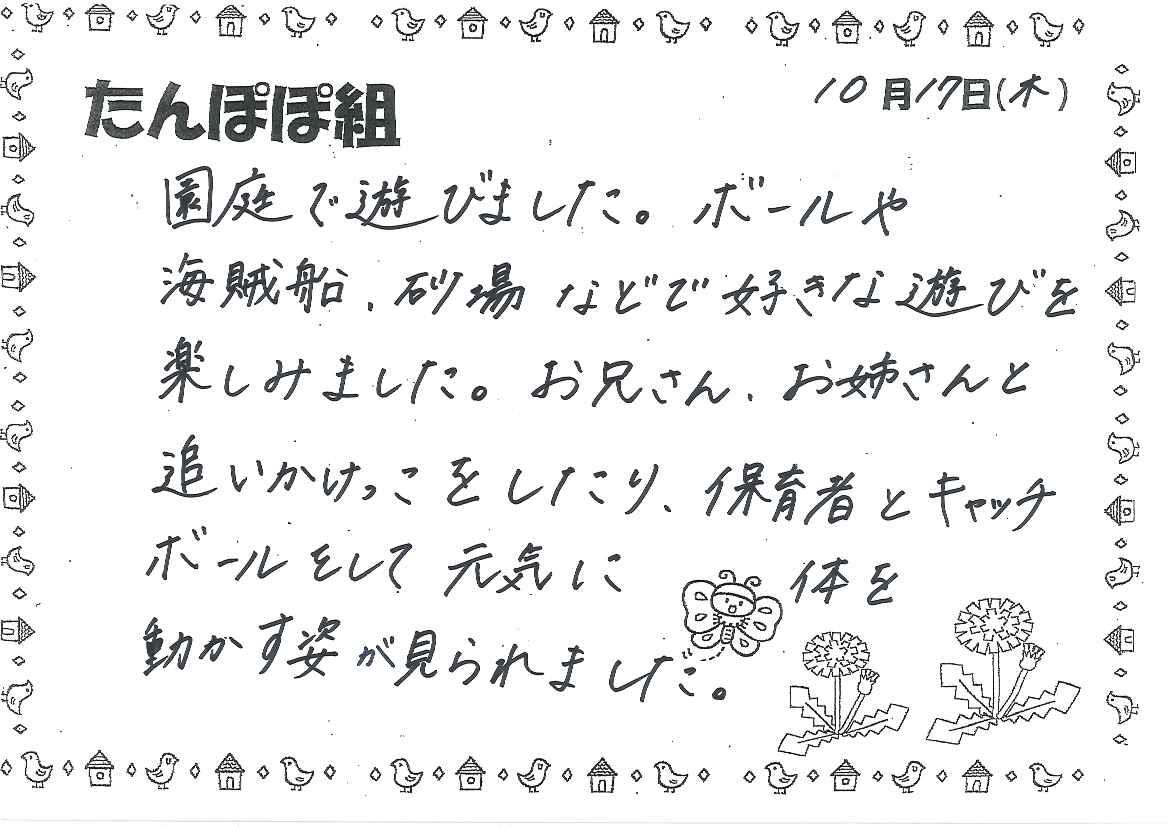 たんぽぽ組
10月17日(木)
園庭で遊びました。ボールや
海賊船、砂場などで好きな遊びを
楽しみました。お兄さん、お姉さんと
追いかけっこをしたり、保育者とキャッチ
ボールをして元気に体を
動かす姿が見られました。